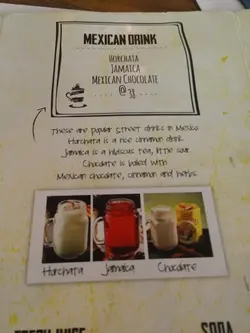 MEXICAN DRINK
HORCHATA
JAMAICA
MEXICAN CHOCOLATE
@ 38
These are popular street drinks in Mexico
Horchata is a rice cinnamon drink.
Jamaica is a hibiscus tea, little sour.
Chocolate is boiled with
Mexican chocolate, cinnamon and herbs.
Horchata Jamaica Chocolate
FRESH JUICE SODA